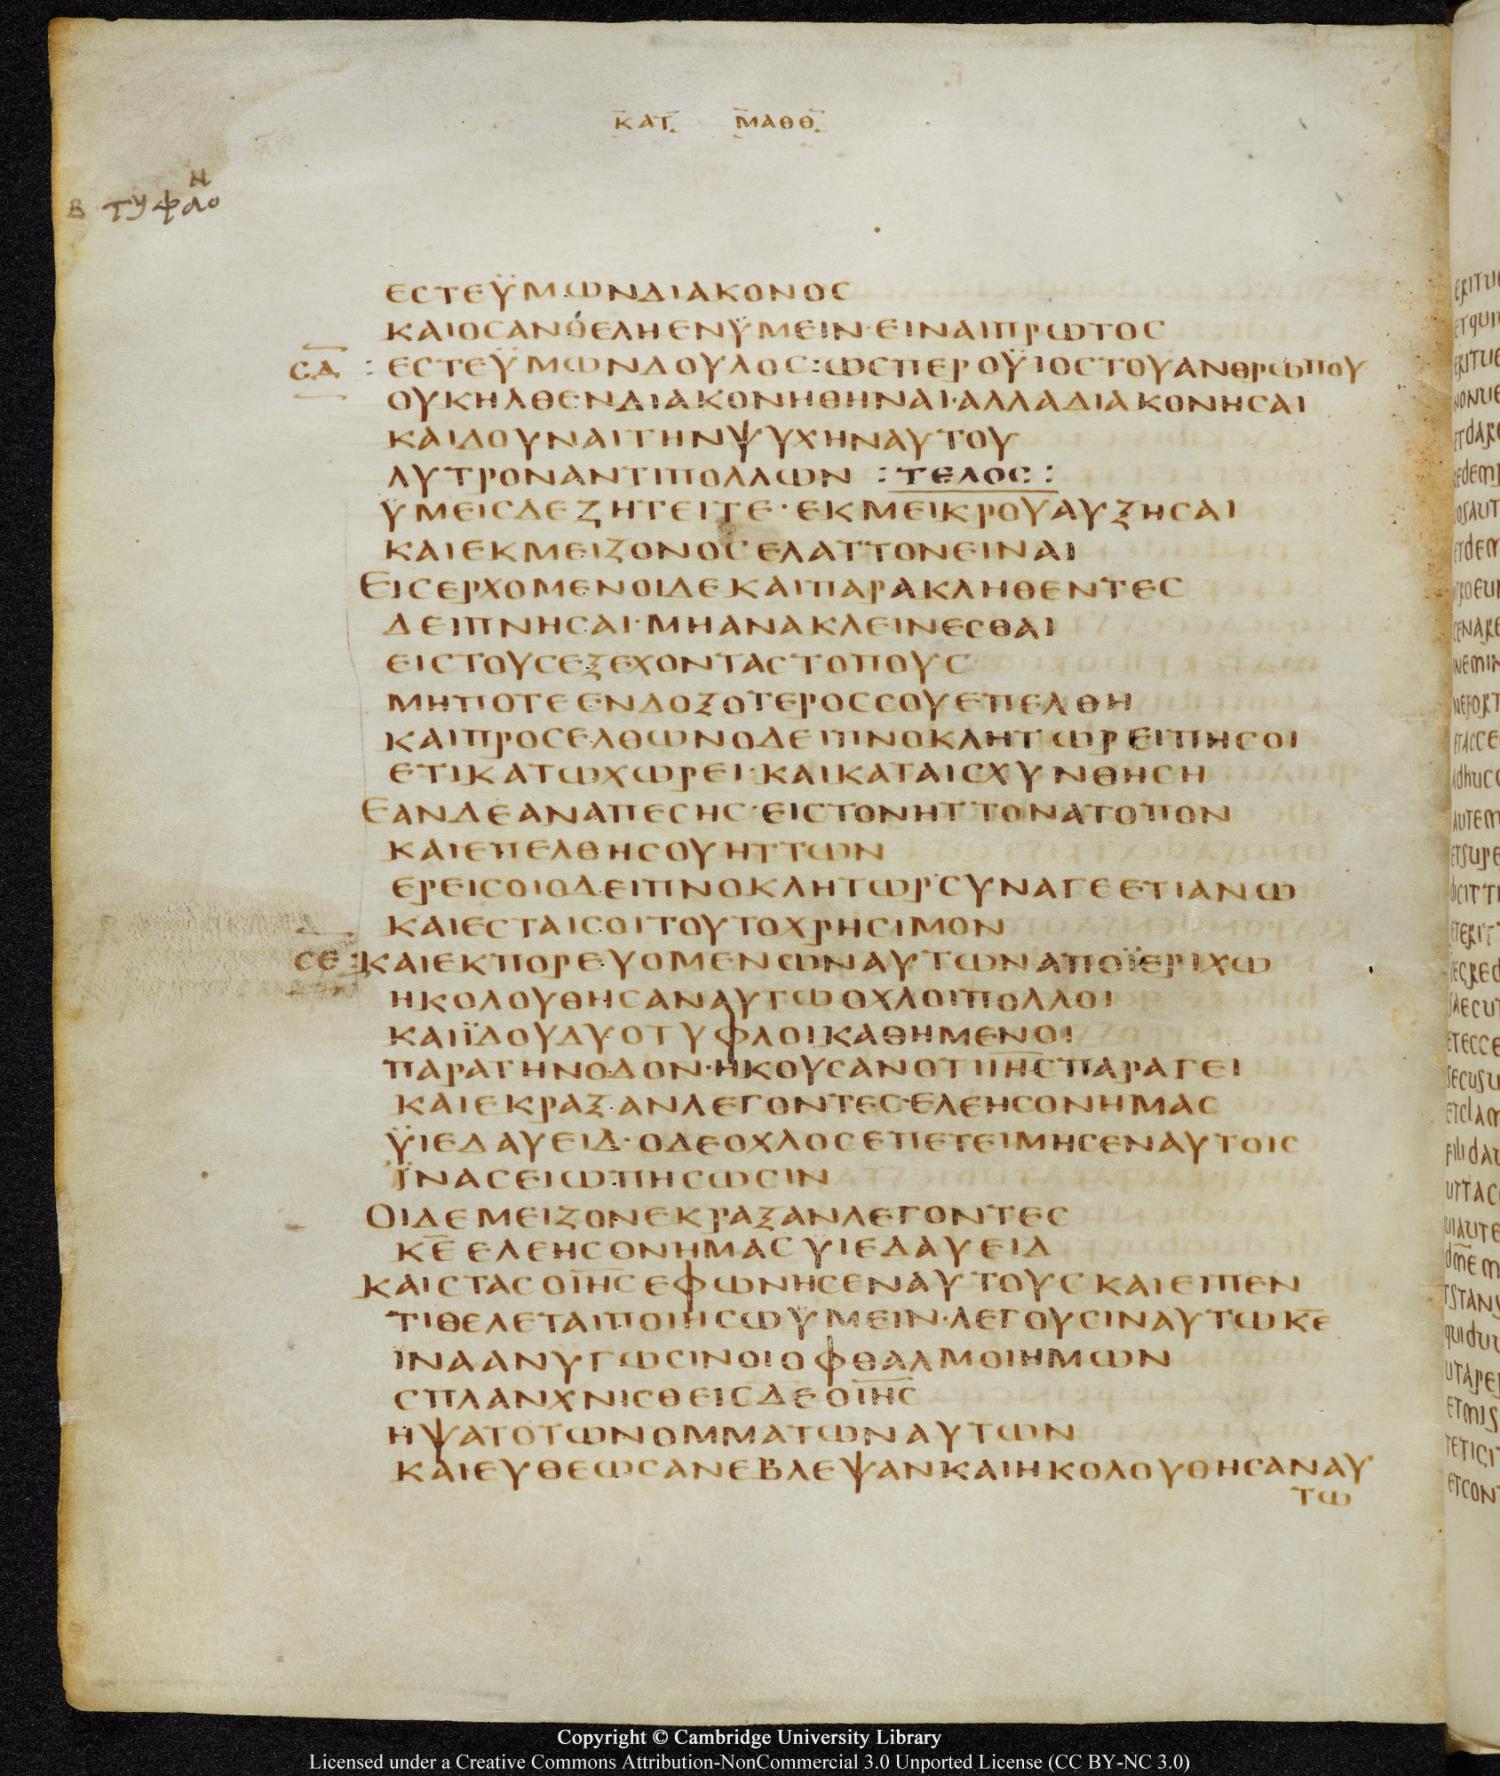 ΚΑΤ ΜΑΘΘ
Β ΤΥΦΛΟ Ν
ΕϹΤΕΫΜΩΝΔΙΑΚΟΝΟϹ
ΚΑΙΟϹΑΝΘΕΛΗΕΝΫΜΕΙΝ·ΕΙΝΑΙΠΡΩΤΟϹ
ϹΔ : ΕϹΤΕΫΜΩΝΔΟΥΛΟϹ:ΩϹΠΕΡΟΫΙΟϹΤΟΥΑΝΘΡΩΠΟΥ
ΟΥΚΗΛΘΕΝΔΙΑΚΟΝΗΘΗΝΑΙ·ΑΛΛΑΔΙΑΚΟΝΗϹΑΙ
ΚΑΙΔΟΥΝΑΙΤΗΝΨΥΧΗΝΑΥΤΟΥ
ΛΥΤΡΟΝΑΝΤΙΠΟΛΛΩΝ :ΤΕΛΟϹ:
ΫΜΕΙϹΔΕΖΗΤΕΙΤΕ·ΕΚΜΕΙΚΡΟΥΑΥΞΗϹΑΙ
ΚΑΙΕΚΜΕΙΖΟΝΟϹΕΛΑΤΤΟΝΕΙΝΑΙ
ΕΙϹΕΡΧΟΜΕΝΟΙΔΕΚΑΙΠΑΡΑΚΛΗΘΕΝΤΕϹ
ΔΕΙΠΝΗϹΑΙ·ΜΗΑΝΑΚΛΕΙΝΕϹΘΑΙ
ΕΙϹΤΟΥϹΕΞΕΧΟΝΤΑϹΤΟΠΟΥϹ
ΜΗΠΟΤΕΕΝΔΟΞΟΤΕΡΟϹϹΟΥΕΠΕΛΘΗ
ΚΑΙΠΡΟϹΕΛΘΩΝΟΔΕΙΠΝΟΚΛΗΤΩΡΕΙΠΗϹΟΙ
ΕΤΙΚΑΤΩΧΩΡΕΙ·ΚΑΙΚΑΤΑΙϹΧΥΝΘΗϹΗ
ΕΑΝΔΕΑΝΑΠΕϹΗϹ·ΕΙϹΤΟΝΗΤΤΟΝΑΤΟΠΟΝ
ΚΑΙΕΠΕΛΘΗϹΟΥΗΤΤΩΝ
ΕΡΕΙϹΟΙΟΔΕΙΠΝΟΚΛΗΤΩΡ·ϹΥΝΑΓΕΕΤΙΑΝΩ
ΚΑΙΕϹΤΑΙϹΟΙΤΟΥΤΟΧΡΗϹΙΜΟΝ
ϹΕ :ΚΑΙΕΚΠΟΡΕΥΟΜΕΝΩΝΑΥΤΩΝΑΠΟΪΕΡΙΧΩ
ΗΚΟΛΟΥΘΗϹΑΝΑΥΤΩΟΧΛΟΙΠΟΛΛΟΙ
ΚΑΙΪΔΟΥΔΥΟΤΥΦΛΟΙΚΑΘΗΜΕΝΟΙ
ΠΑΡΑΤΗΝΟΔΟΝ·ΗΚΟΥϹΑΝΟΤΙΙΗϹΠΑΡΑΓΕΙ
ΚΑΙΕΚΡΑΞΑΝΛΕΓΟΝΤΕϹ·ΕΛΕΗϹΟΝΗΜΑϹ
ΫΙΕΔΑΥΕΙΔ·ΟΔΕΟΧΛΟϹΕΠΕΤΕΙΜΗϹΕΝΑΥΤΟΙϹ
ΪΝΑϹΕΙΩΠΗϹΩϹΙΝ
ΟΙΔΕΜΕΙΖΟΝΕΚΡΑΞΑΝΛΕΓΟΝΤΕϹ
ΚΕ ΕΛΕΗϹΟΝΗΜΑϹΥΙΕΔΑΥΕΙΔ
ΚΑΙϹΤΑϹΟΙΗϹΕΦΩΝΗϹΕΝΑΥΤΟΥϹΚΑΙΕΙΠΕΝ
ΤΙΘΕΛΕΤΑΙΠΟΙΗϹΩΫΜΕΙΝ·ΛΕΓΟΥϹΙΝΑΥΤΩΚΕ
ΙΝΑΑΝΥΓΩϹΙΝΟΙΟΦΘΑΛΜΟΙΗΜΩΝ
ϹΠΛΑΝΧΝΙϹΘΕΙϹΔΕΟΙΗϹ
ΗΨΑΤΟΤΩΝΟΜΜΑΤΩΝΑΥΤΩΝ
ΚΑΙΕΥΘΕΩϹΑΝΕΒΛΕΨΑΝΚΑΙΗΚΟΛΟΥΘΗϹΑΝΑΥ
ΤΩ
Copyright © Cambridge University Library
Licensed under a Creative Commons Attribution-NonCommercial 3.0 Unported License (CC BY-NC 3.0)